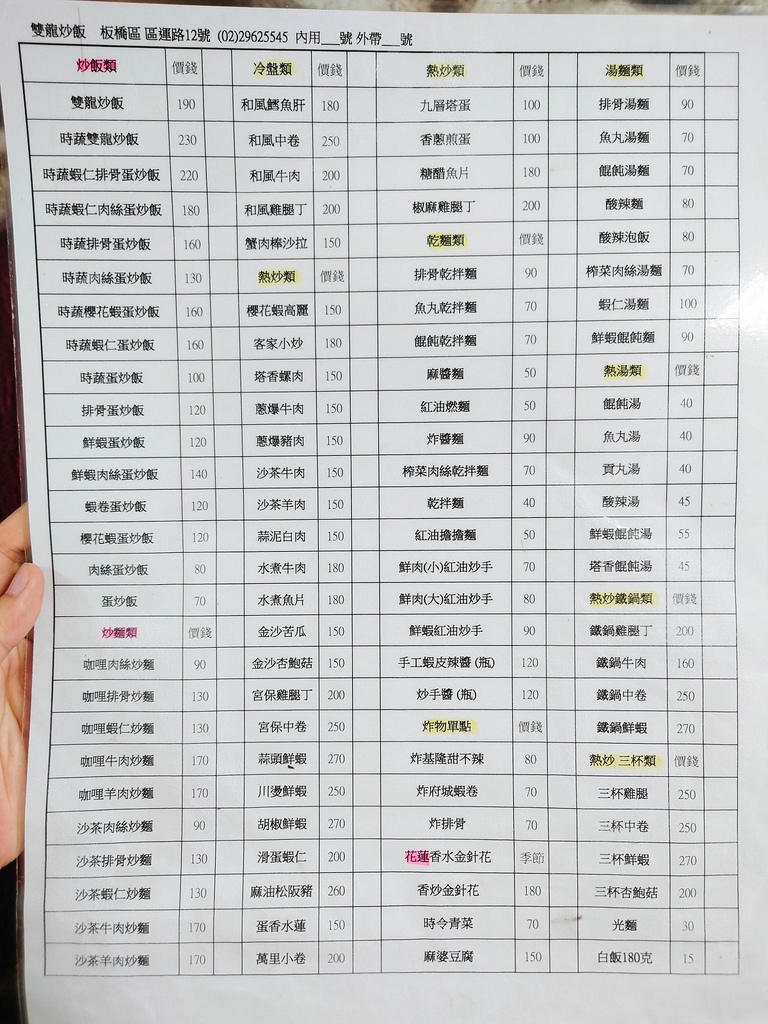 雙龍炒飯 板橋區 區運路12號 (02)29625545 內用___號 外帶___號
炒飯類 價錢 冷盤類 價錢 熱炒類 價錢 湯麵類 價錢
雙龍炒飯 190 和風鱈魚肝 180 九層塔蛋 100 排骨湯麵 90
時蔬雙龍炒飯 230 和風中卷 250 香蔥煎蛋 100 魚丸湯麵 70
時蔬蝦仁排骨蛋炒飯 220 和風牛肉 200 糖醋魚片 180 餛飩湯麵 70
時蔬蝦仁肉絲蛋炒飯 180 和風雞腿丁 200 椒麻雞腿丁 200 酸辣麵 80
時蔬排骨蛋炒飯 160 蟹肉棒沙拉 150 乾麵類 價錢 酸辣泡飯 80
時蔬肉絲蛋炒飯 130 熱炒類 價錢 排骨乾拌麵 90 榨菜肉絲湯麵 70
時蔬櫻花蝦蛋炒飯 160 櫻花蝦高麗 150 魚丸乾拌麵 70 蝦仁湯麵 100
時蔬蝦仁蛋炒飯 160 客家小炒 180 餛飩乾拌麵 70 鮮蝦餛飩麵 90
時蔬蛋炒飯 100 塔香螺肉 150 麻醬麵 50 熱湯類 價錢
排骨蛋炒飯 120 蔥爆牛肉 150 紅油燃麵 50 餛飩湯 40
鮮蝦蛋炒飯 120 蔥爆豬肉 150 炸醬麵 90 魚丸湯 40
鮮蝦肉絲蛋炒飯 140 沙茶牛肉 150 榨菜肉絲乾拌麵 70 貢丸湯 40
蝦卷蛋炒飯 120 沙茶羊肉 150 乾拌麵 40 酸辣湯 45
櫻花蝦蛋炒飯 120 蒜泥白肉 150 紅油擔擔麵 50 鮮蝦餛飩湯 55
肉絲蛋炒飯 80 水煮牛肉 180 鮮肉(小)紅油炒手 70 塔香餛飩湯 45
蛋炒飯 70 水煮魚片 180 鮮肉(大)紅油炒手 80 熱炒鐵鍋類 價錢
炒麵類 價錢 金沙苦瓜 150 鮮蝦紅油炒手 90 鐵鍋雞腿丁 200
咖哩肉絲炒麵 90 金沙杏鮑菇 150 手工蝦皮辣醬 (瓶) 120 鐵鍋牛肉 160
咖哩排骨炒麵 130 宮保雞腿丁 200 炒手醬 (瓶) 120 鐵鍋中卷 250
咖哩蝦仁炒麵 130 宮保中卷 250 炸物單點 價錢 鐵鍋鮮蝦 270
咖哩牛肉炒麵 170 蒜頭鮮蝦 270 炸基隆甜不辣 80 熱炒 三杯類 價錢
咖哩羊肉炒麵 170 川燙鮮蝦 250 炸府城蝦卷 70 三杯雞腿 250
沙茶肉絲炒麵 90 胡椒鮮蝦 270 炸排骨 70 三杯中卷 250
沙茶排骨炒麵 130 滑蛋蝦仁 200 花蓮香水金針花 季節 三杯鮮蝦 270
沙茶蝦仁炒麵 130 麻油松阪豬 260 香炒金針花 180 三杯杏鮑菇 200
沙茶牛肉炒麵 170 蛋香水蓮 150 時令青菜 70 光麵 30
沙茶羊肉炒麵 170 萬里小卷 200 麻婆豆腐 150 白飯180克 15